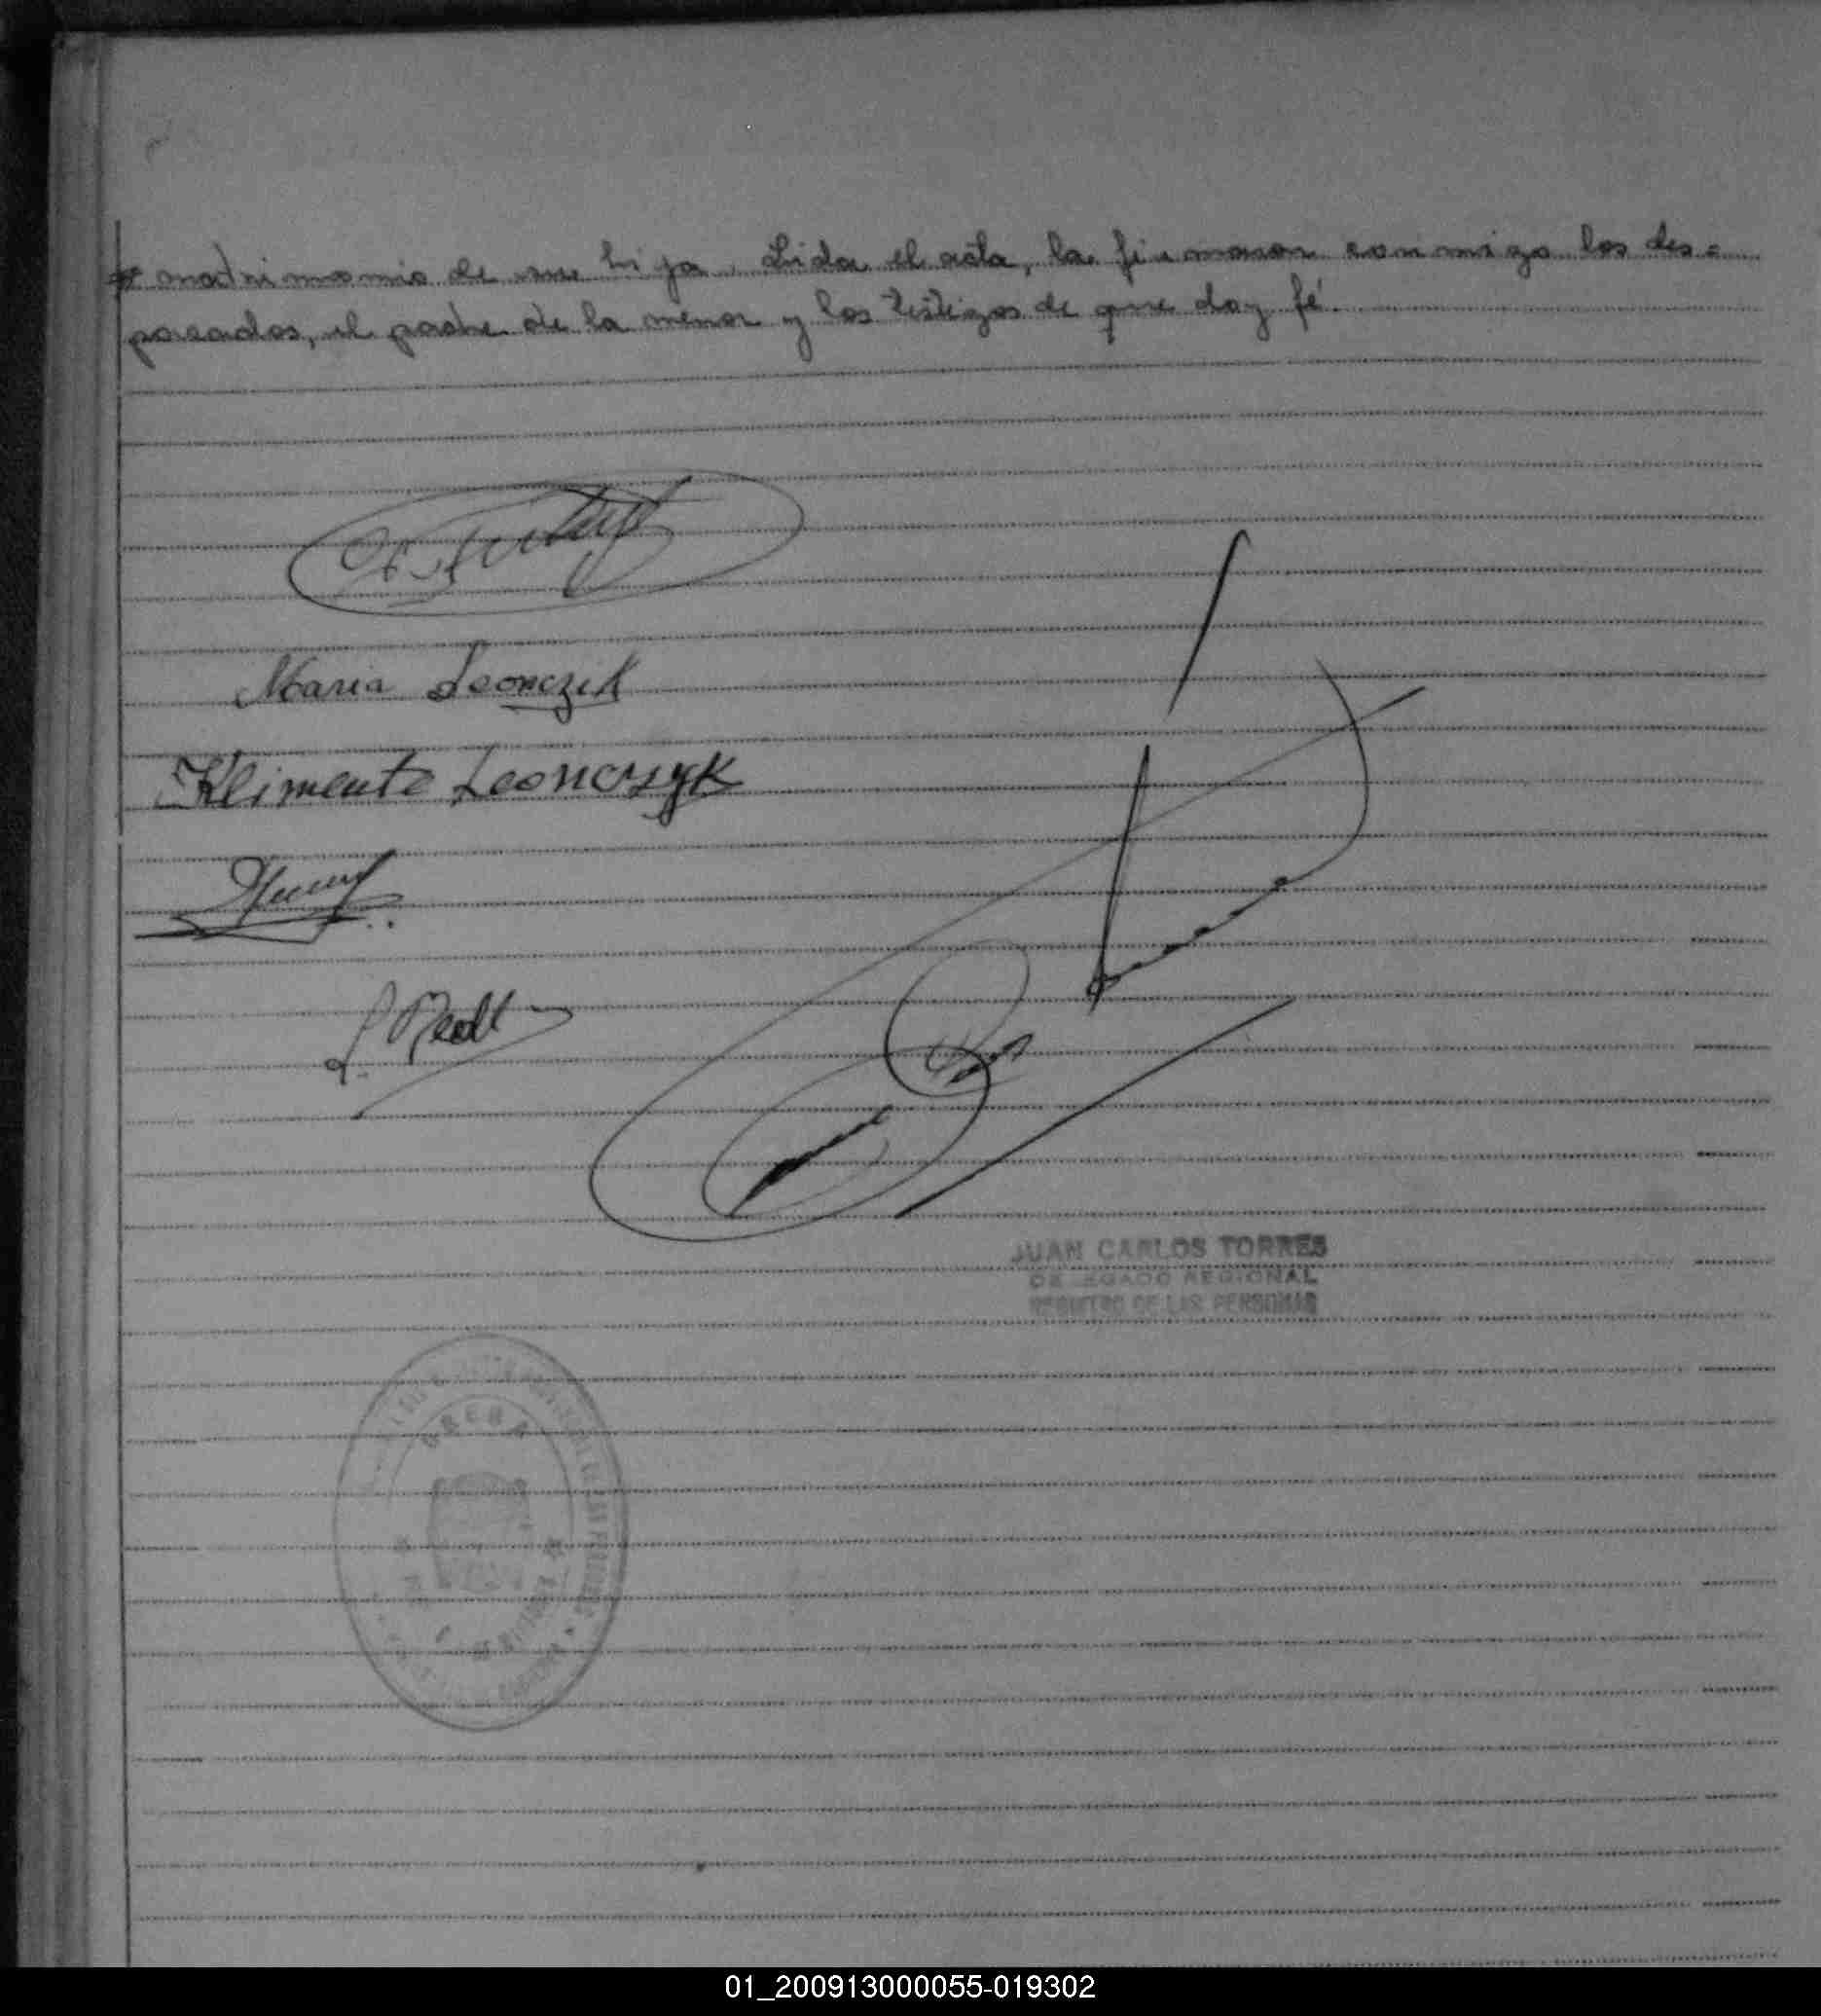 matrimonio de su hija. Leida el acta, la firmaron conmigo los des=
posados, el padre de la menor y los testigos de que doy fé.
Maria Leonczik
Klimente Leonczyk
JUAN CARLOS TORRES
DELEGADO REGIONAL
REGISTRO DE LAS PERSONAS
OBERA
MISIONES
01_200913000055-019302